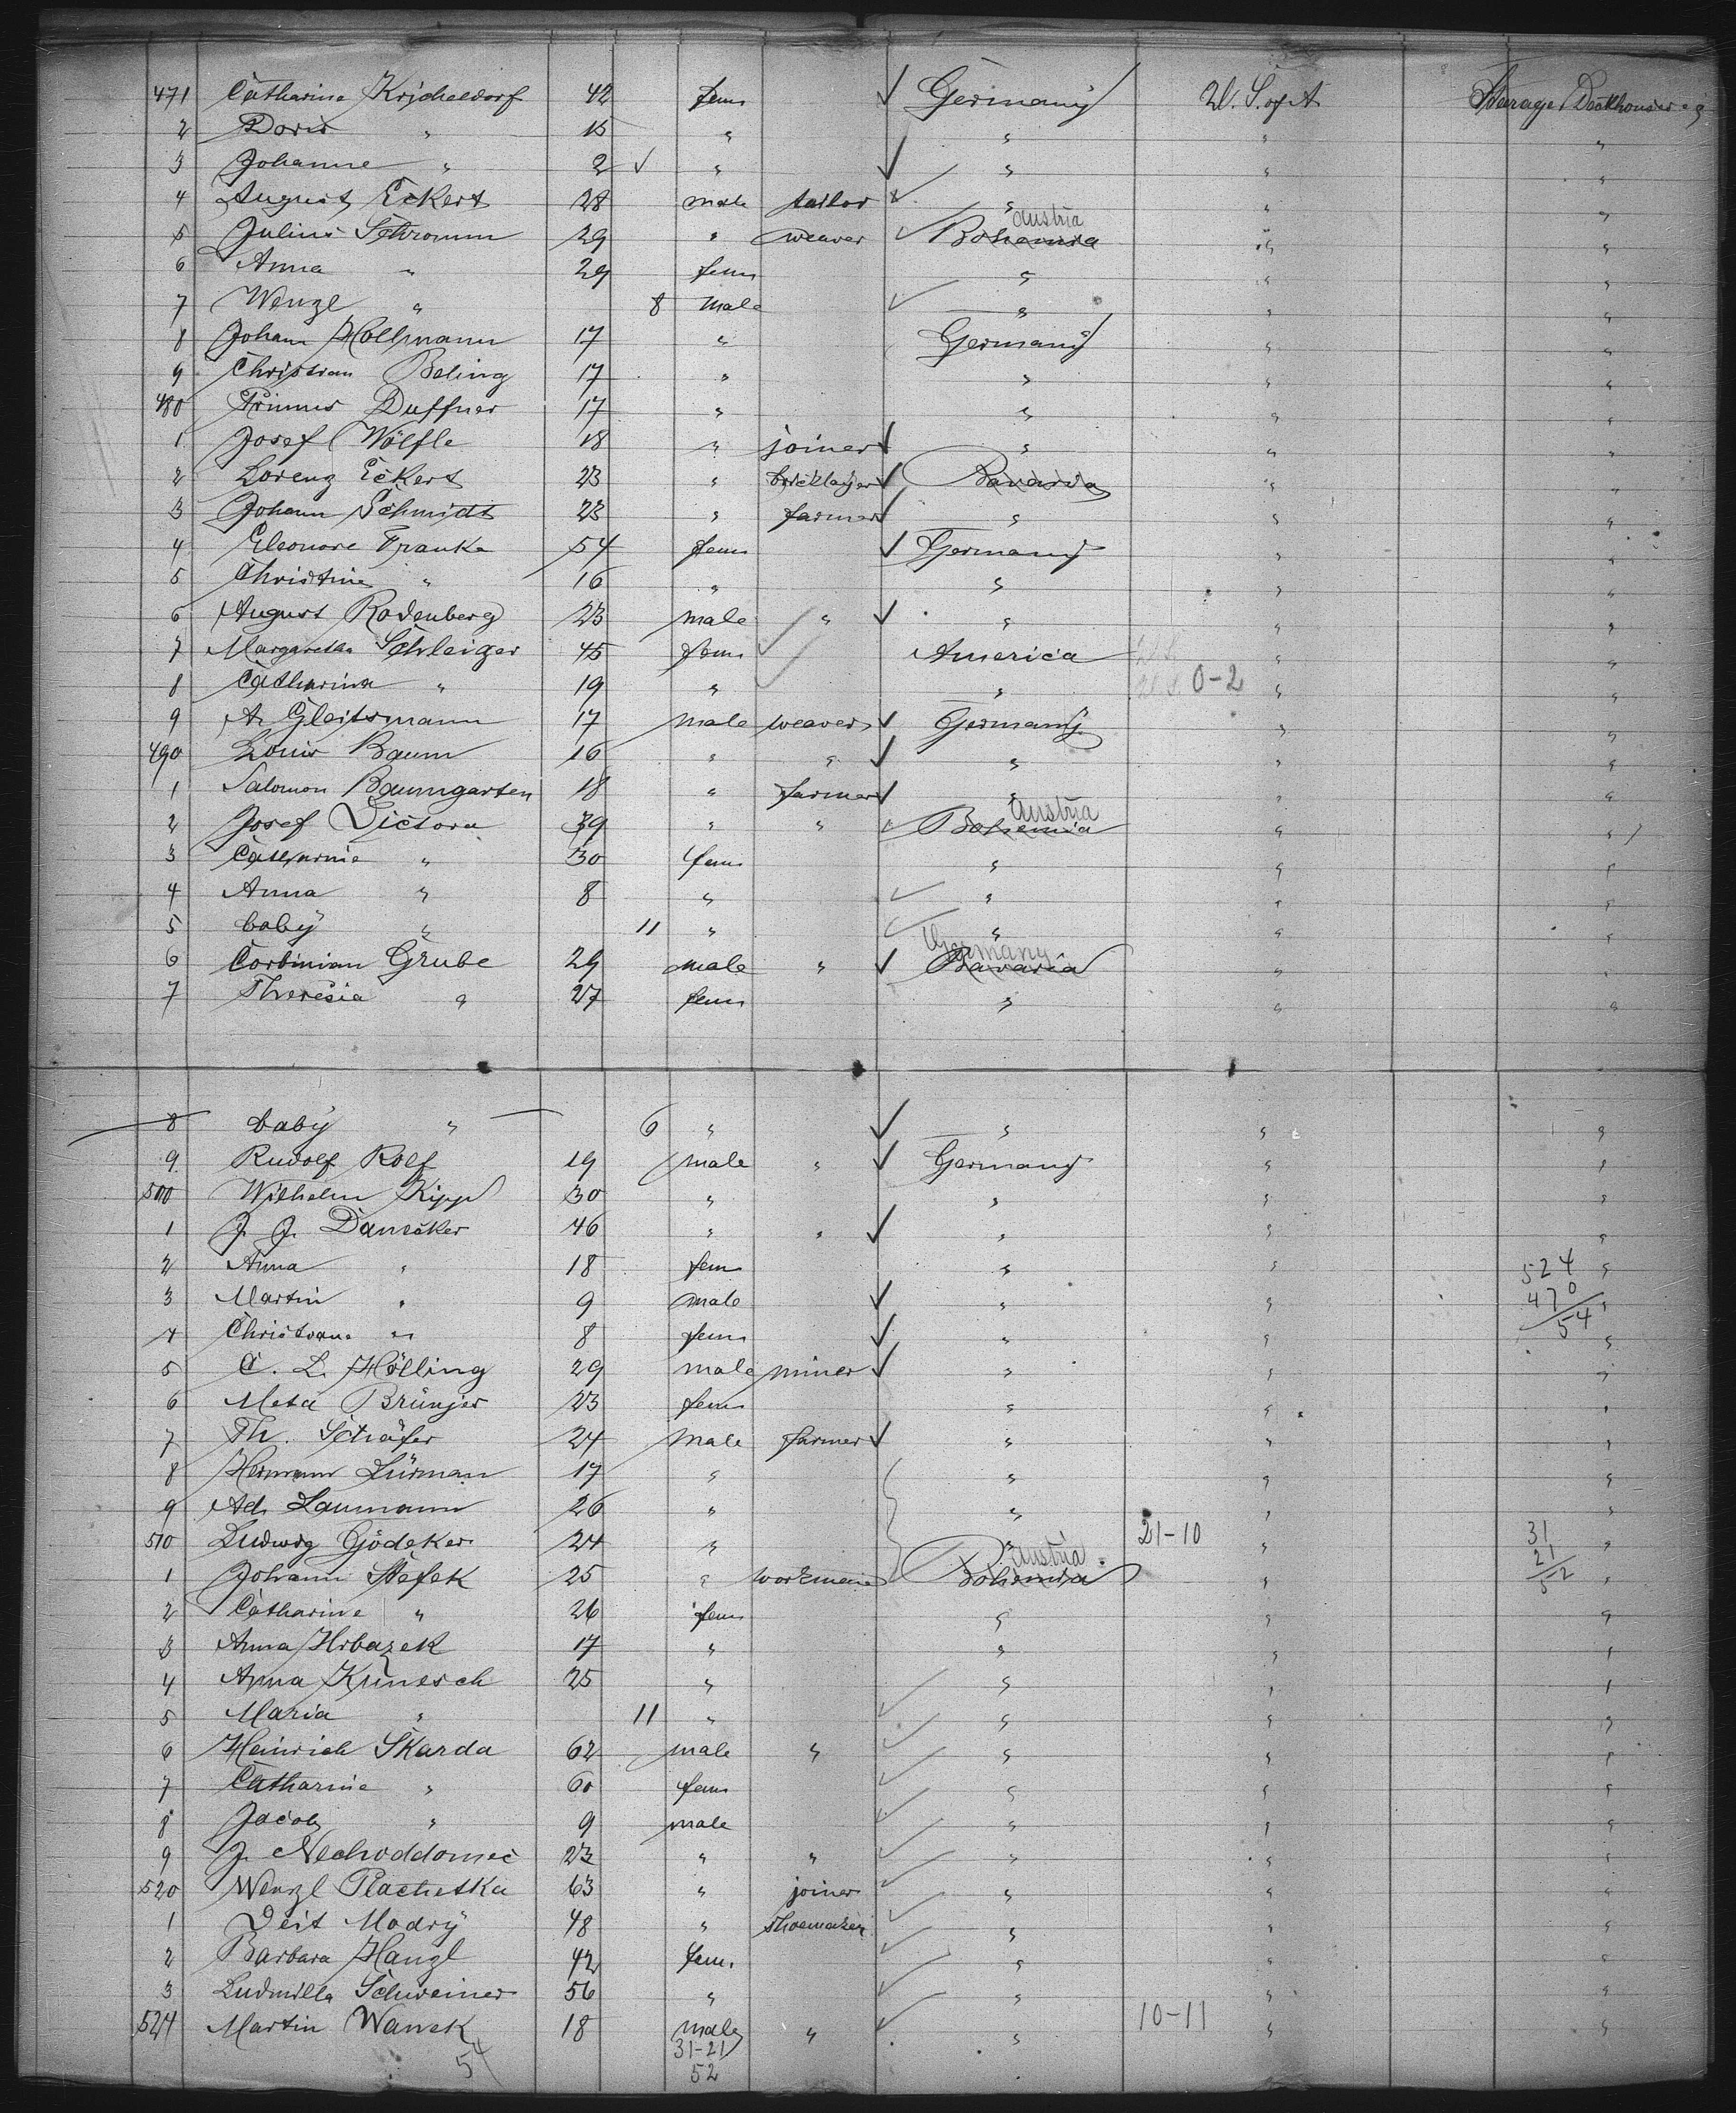 471 Catharine Kricheldorf 42 fem Germany U. S. of A Steerage Deckhouse
2 Doris " 15 " " " "
3 Johanne " 2 " " " "
4 August Eckert 28 male tailor " " "
5 Julius Schromm 29 " weaver Bohemia Austria " "
6 Anna " 29 fem " " "
7 Wenzl " 8 male " " "
8 Johann Hollmann 17 " Germany " "
9 Christian Beling 17 " " " "
480 Primus Duffner 17 " " " "
1 Josef Wölfle 18 " joiner " " "
2 Lorenz Eckert 23 " bricklayer Bavaria " "
3 Johann Schmidt 23 " farmer " " "
4 Eleonore Franke 54 fem Germany " "
5 Christine " 16 " " " "
6 August Rodenberg 23 male " " " "
7 Margaretha Schleiger 45 fem America U.S. " "
8 Catharina " 19 " " U.S. 0-2 " "
9 A. Gleitsmann 17 male weaver Germany " "
490 Louis Baum 16 " " " " "
1 Salomon Baumgarten 18 " farmer " " "
2 Josef Victora 39 " " Bohemia Austria " "
3 Catharine " 30 fem " " "
4 Anna " 8 " " " "
5 baby " 11 " " " "
6 Corbinian Grube 29 male " Bavaria Germany " "
7 Theresia " 27 fem " " "
8 baby " 6 " " " "
9 Rudolf Rolf 19 male " Germany " "
500 Wilhelm Kipp 30 " " " "
1 J. J. Dansäker 46 " " " " "
2 Anna " 18 fem " " 524 "
3 Martin " 9 male " " 470 "
4 Christiane " 8 fem " " 54 "
5 C. L. Hölling 29 male miner " " "
6 Meta Brünjes 23 fem " " "
7 Th. Schäfer 24 male farmer " " "
8 Hermann Lürman 17 " " " "
9 Ad. Laumann 26 " " " "
510 Ludwig Gödeker 24 " " 21-10 " 31 "
1 Johann Stefek 25 " workmen Bohemia Austria " 21 52 "
2 Catharine " 26 fem " " "
3 Anna Hrbazek 17 " " " "
4 Anna Kunesch 25 " " " "
5 Maria " 11 " " " "
6 Heinrich Skarda 62 male " " " "
7 Catharine " 60 fem " " "
8 Jacob " 9 male " " "
9 J. Nechoddomec 23 " " " " "
520 Wenzl Plachetka 63 " joiner " " "
1 Veit Modry 48 " shoemaker " " "
2 Barbara Hanzl 42 fem. " " "
3 Ludmilla Schweiner 56 " " " "
524 Martin Wanek 18 male " " 10-11 " "
54 31-21
52